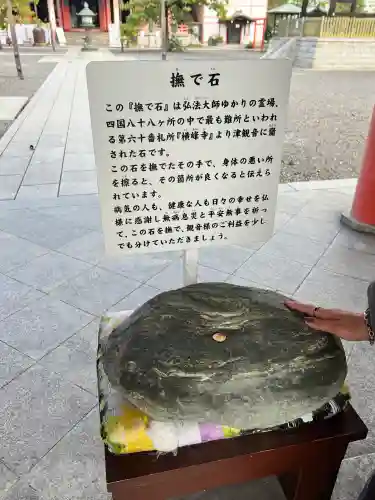 撫で石
この『撫で石』は弘法大師ゆかりの霊場、
四国八十八ヶ所の中で最も難所といわれ
る第六十番札所『横峰寺』より津観音に齎
された石です。
この石を撫でたその手で、身体の悪い所
を擦ると、その箇所が良くなると伝えら
れています。
病気の人も、健康な人も日々の幸せを仏
様に感謝し無病息災と平安無事を祈っ
て、この石を撫で、観音様のご利益を少し
でも分けていただきましょう。